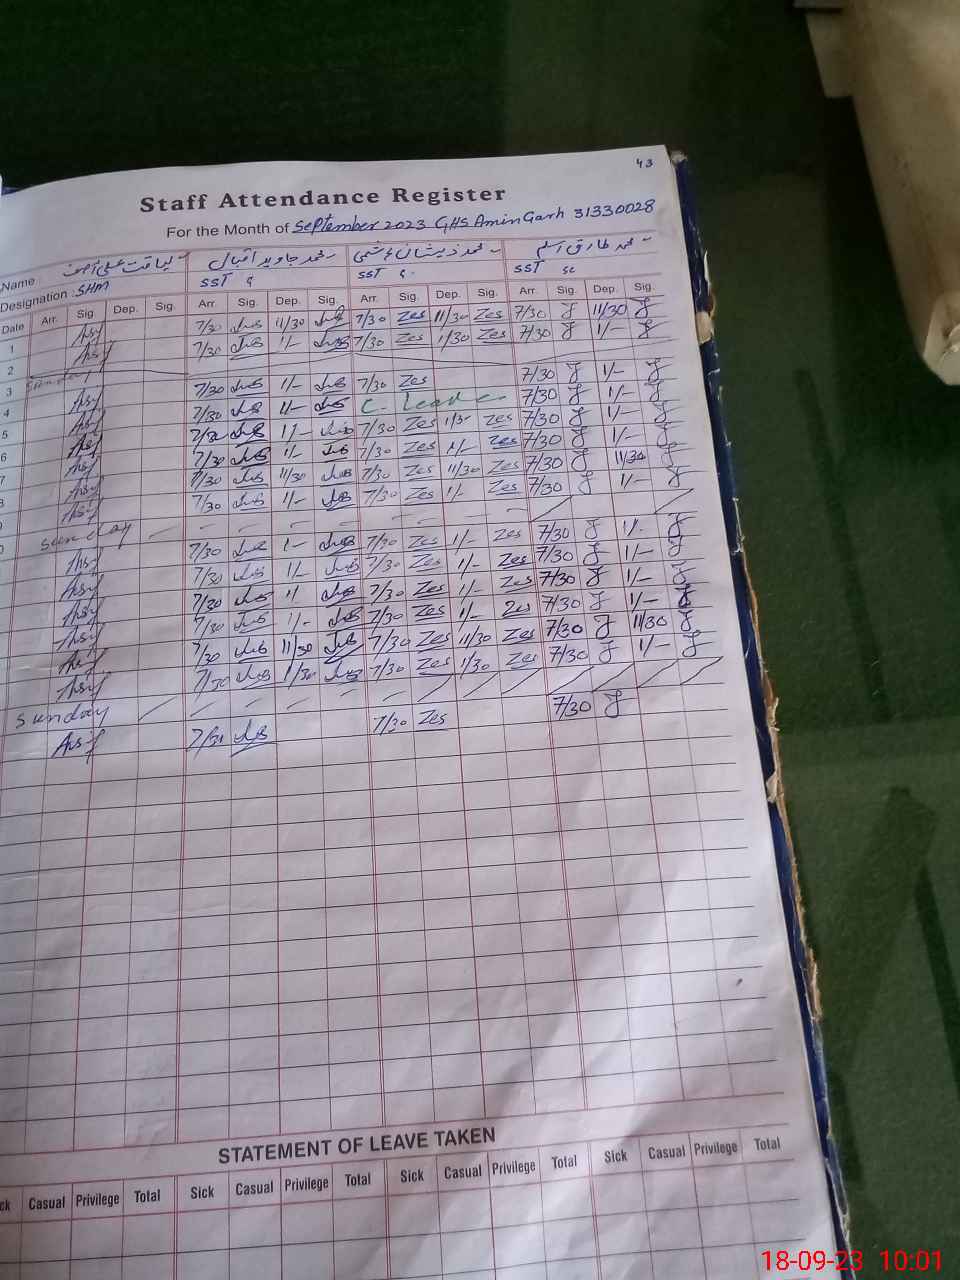 43
Staff Attendance Register
For the Month of September 2023 GHS Amin Garh 31330028
Name لیاقت علی آصف محمد جاوید اقبال محمد ذیشان ہاشمی محمد طارق اسلم
Designation SHM SST SST SST SC
Date Arr. Sig Dep. Sig. Arr. Sig. Dep. Sig. Arr. Sig. Dep. Sig. Arr. Sig. Dep. Sig.
1 7/30 11/30 7/30 Zes 11/30 Zes 7/30 11/30
2 7/30 1/- 7/30 Zes 1/30 Zes 7/30 1/-
3 Sunday
4 7/30 1/- 7/30 Zes 7/30 1/-
5 7/30 1/- C. Leave 7/30 1/-
6 7/30 1/- 7/30 Zes 1/30 Zes 7/30 1/-
7 7/30 1/- 7/30 Zes 1/- Zes 7/30 1/-
8 7/30 11/30 7/30 Zes 11/30 Zes 7/30 11/30
9 7/30 1/- 7/30 Zes 1/- Zes 7/30 1/-
0 Sunday
7/30 1/- 7/30 Zes 1/- Zes 7/30 1/-
7/30 1/- 7/30 Zes 1/- Zes 7/30 1/-
7/30 1/- 7/30 Zes 1/- Zes 7/30 1/-
7/30 1/- 7/30 Zes 1/- Zes 7/30 1/-
7/30 11/30 7/30 Zes 11/30 Zes 7/30 11/30
7/30 1/30 7/30 Zes 1/30 Zes 7/30 1/-
Sunday
7/30 7/30 Zes 7/30
STATEMENT OF LEAVE TAKEN
ck Casual Privilege Total Sick Casual Privilege Total Sick Casual Privilege Total Sick Casual Privilege Total
18-09-23 10:01